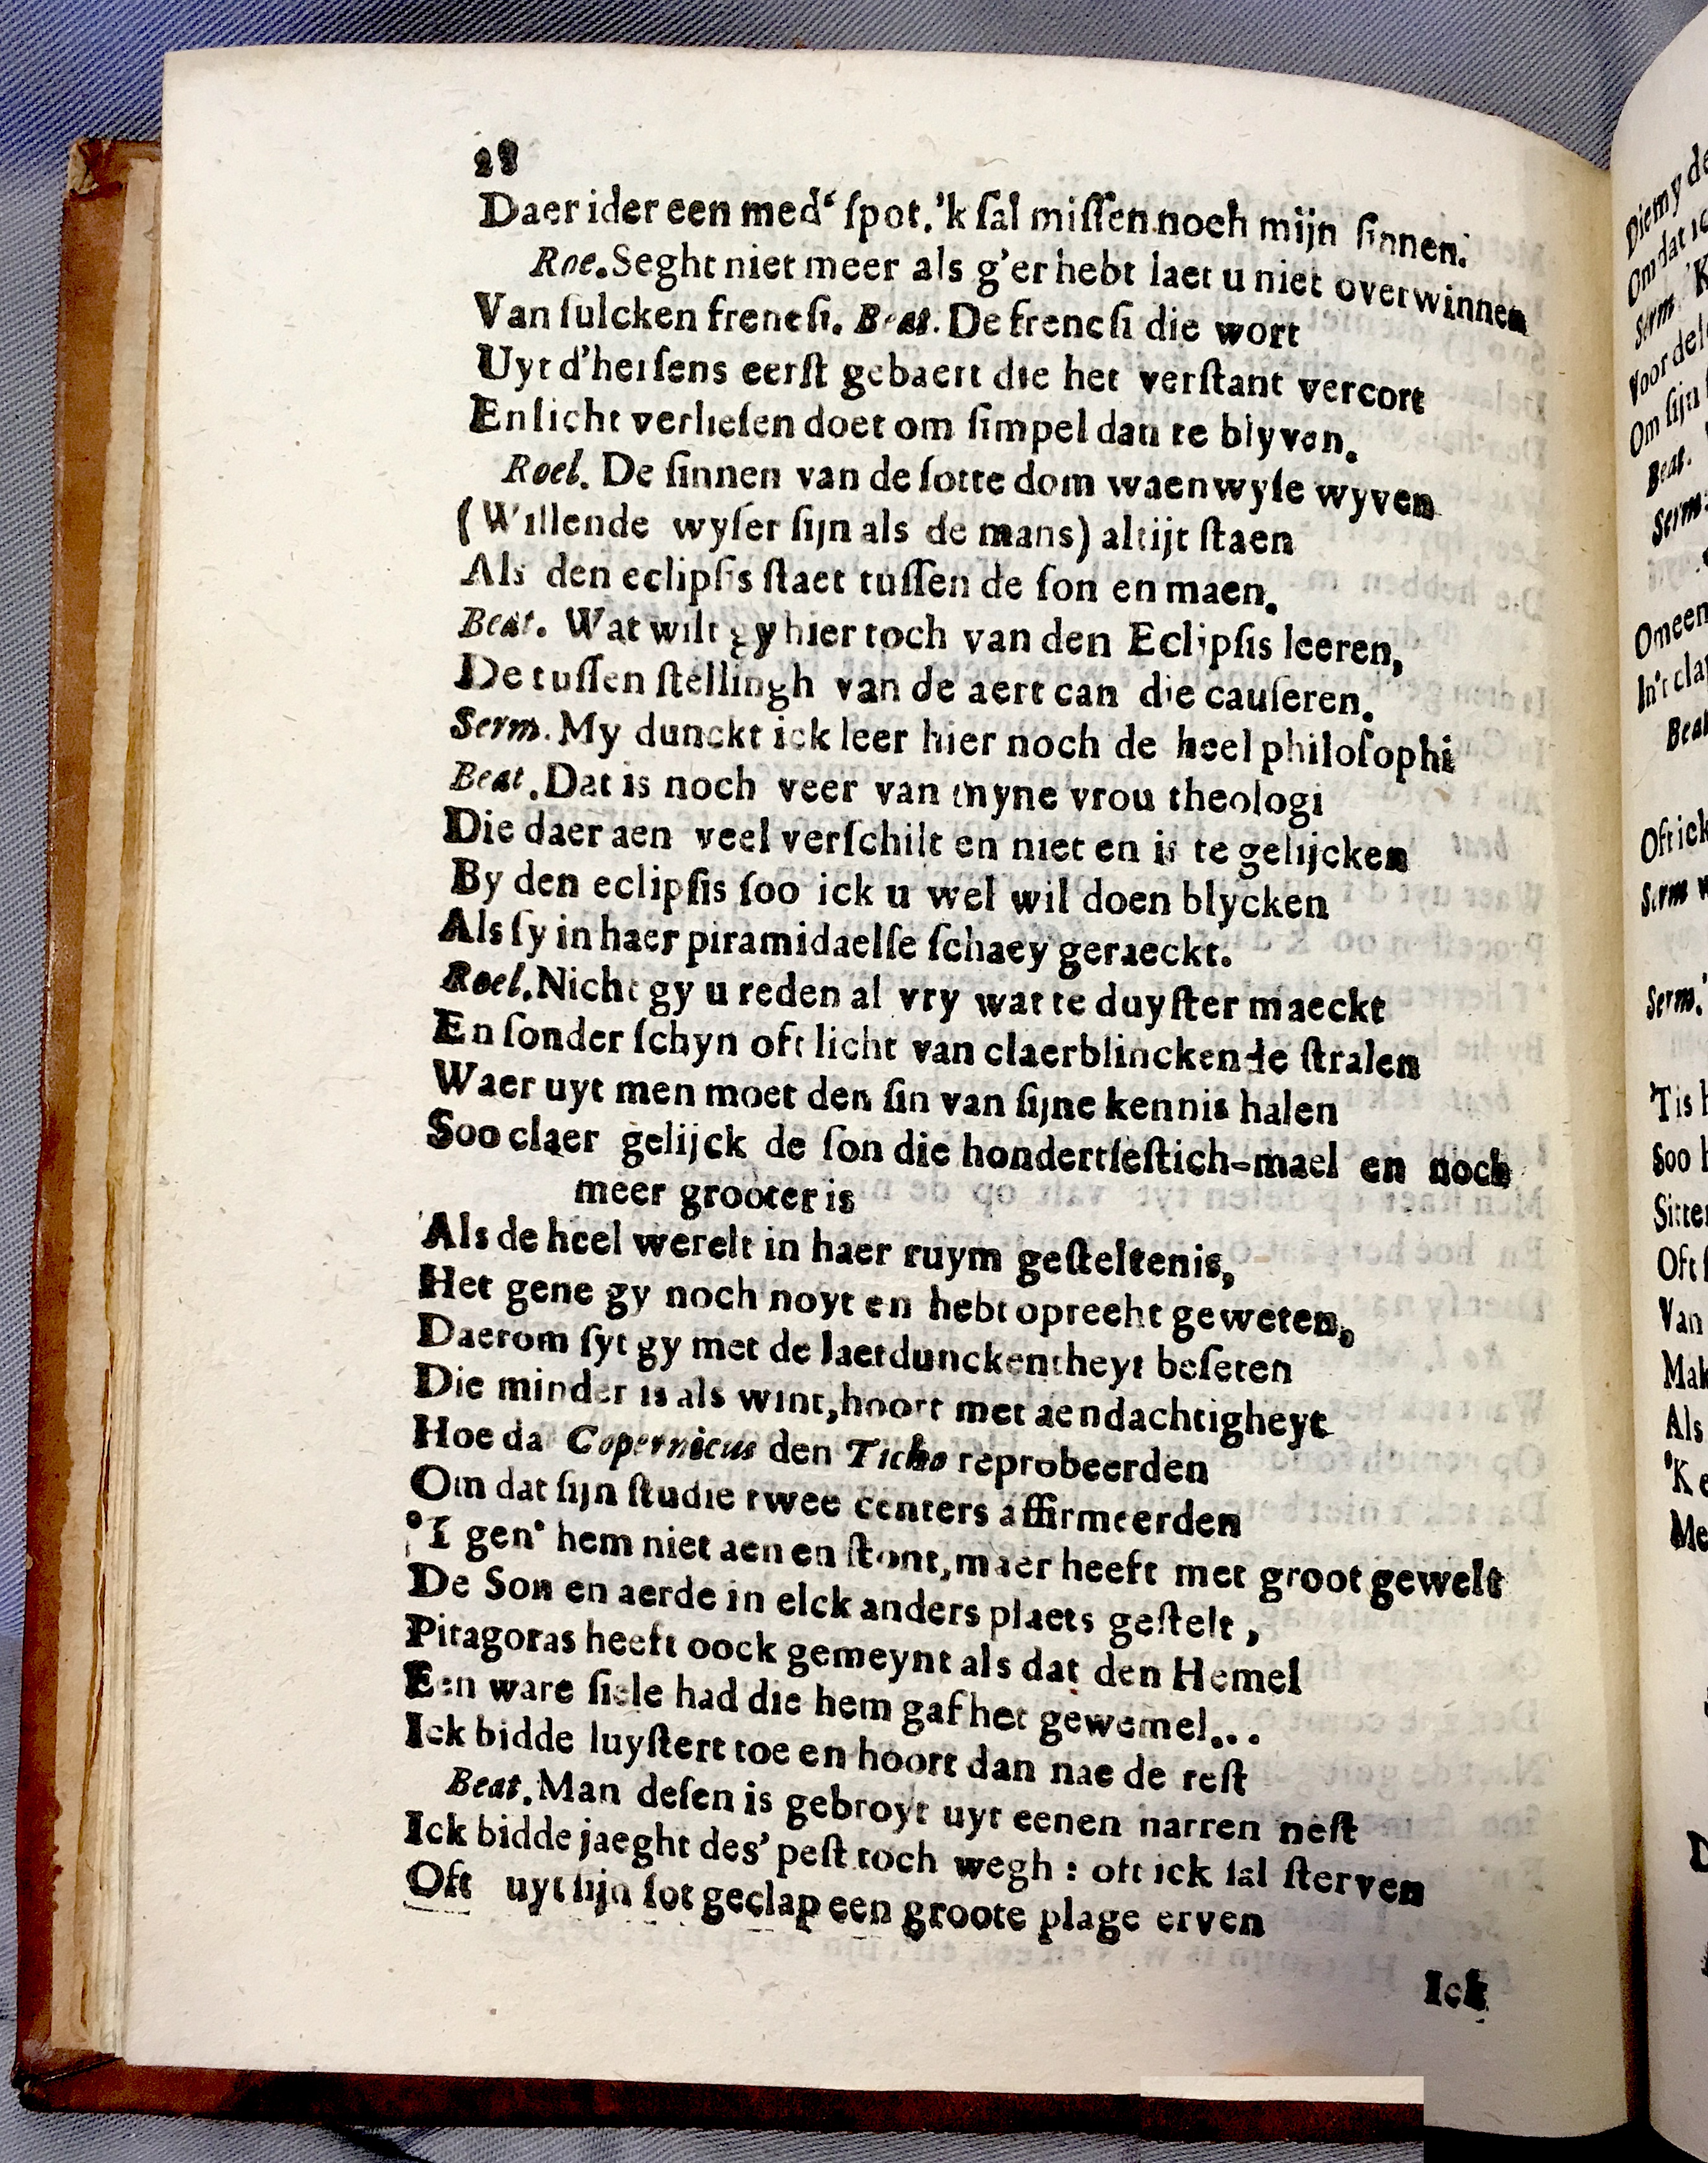 28
Daer ider een med‘ ſpot.’k ſal miſſen noch mijn ſinnen.
Roe. Seght niet meer als g’er hebt laet u niet overwinnen
Van ſulcken freneſi. Beat. De freneſi die wort
Uyt d’herſens eerſt gebaert die het verſtant vercort
En licht verlieſen doet om ſimpel dan te blyven.
Roel. De ſinnen van de ſotte dom waenwyſe wyven
(Willende wyſer ſijn als de mans) altijt ſtaen
Als den eclipſis ſtaet tuſſen de ſon en maen.
Beat. Wat wilt gy hier toch van den Eclipſis leeren,
De tuſſen ſtellingh van de aert can die cauſeren.
Serm. My dunckt ick leer hier noch de heel philoſophi
Beat. Dat is noch veer van myne vrou theologi
Die daer aen veel verſchilt en niet en is te gelijcken
By den eclipſis ſoo ick u wel wil doen blycken
Als ſy in haer piramidaelſe ſchaey geraeckt.
Roel. Nicht gy u reden al vry wat te duyſter maeckt
En ſonder ſchyn oft licht van claerblinckende ſtralen
Waer uyt men moet den ſin van ſijne kennis halen
Soo claer gelijck de ſon die hondertſeſtich-mael en noch
meer grooter is
Als de heel werelt in haer ruym geſteltenis,
Het gene gy noch noyt en hebt oprecht geweten,
Daerom ſyt gy met de laetdunckentheyt beſeten
Die minder is als wint, hoort met aendachtigheyt
Hoe da Copernicus den Ticho reprobeerden
Om dat ſijn ſtudie twee centers affirmeerden
’T gen’ hem niet aen en ſtont, maer heeft met groot gewelt
De Son en aerde in elck anders plaets geſtelt,
Pitagoras heeft oock gemeynt als dat den Hemel
Een ware ſiele had die hem gaf het gewemel...
Ick bidde luyſtert toe en hoort dan nae de reſt
Beat. Man deſen is gebroyt uyt eenen narren neſt
Ick bidde jaeght des’ peſt toch wegh : oft ick ſal ſterven
Oft uyt ſijn ſot geclap een groote plage erven
Ick